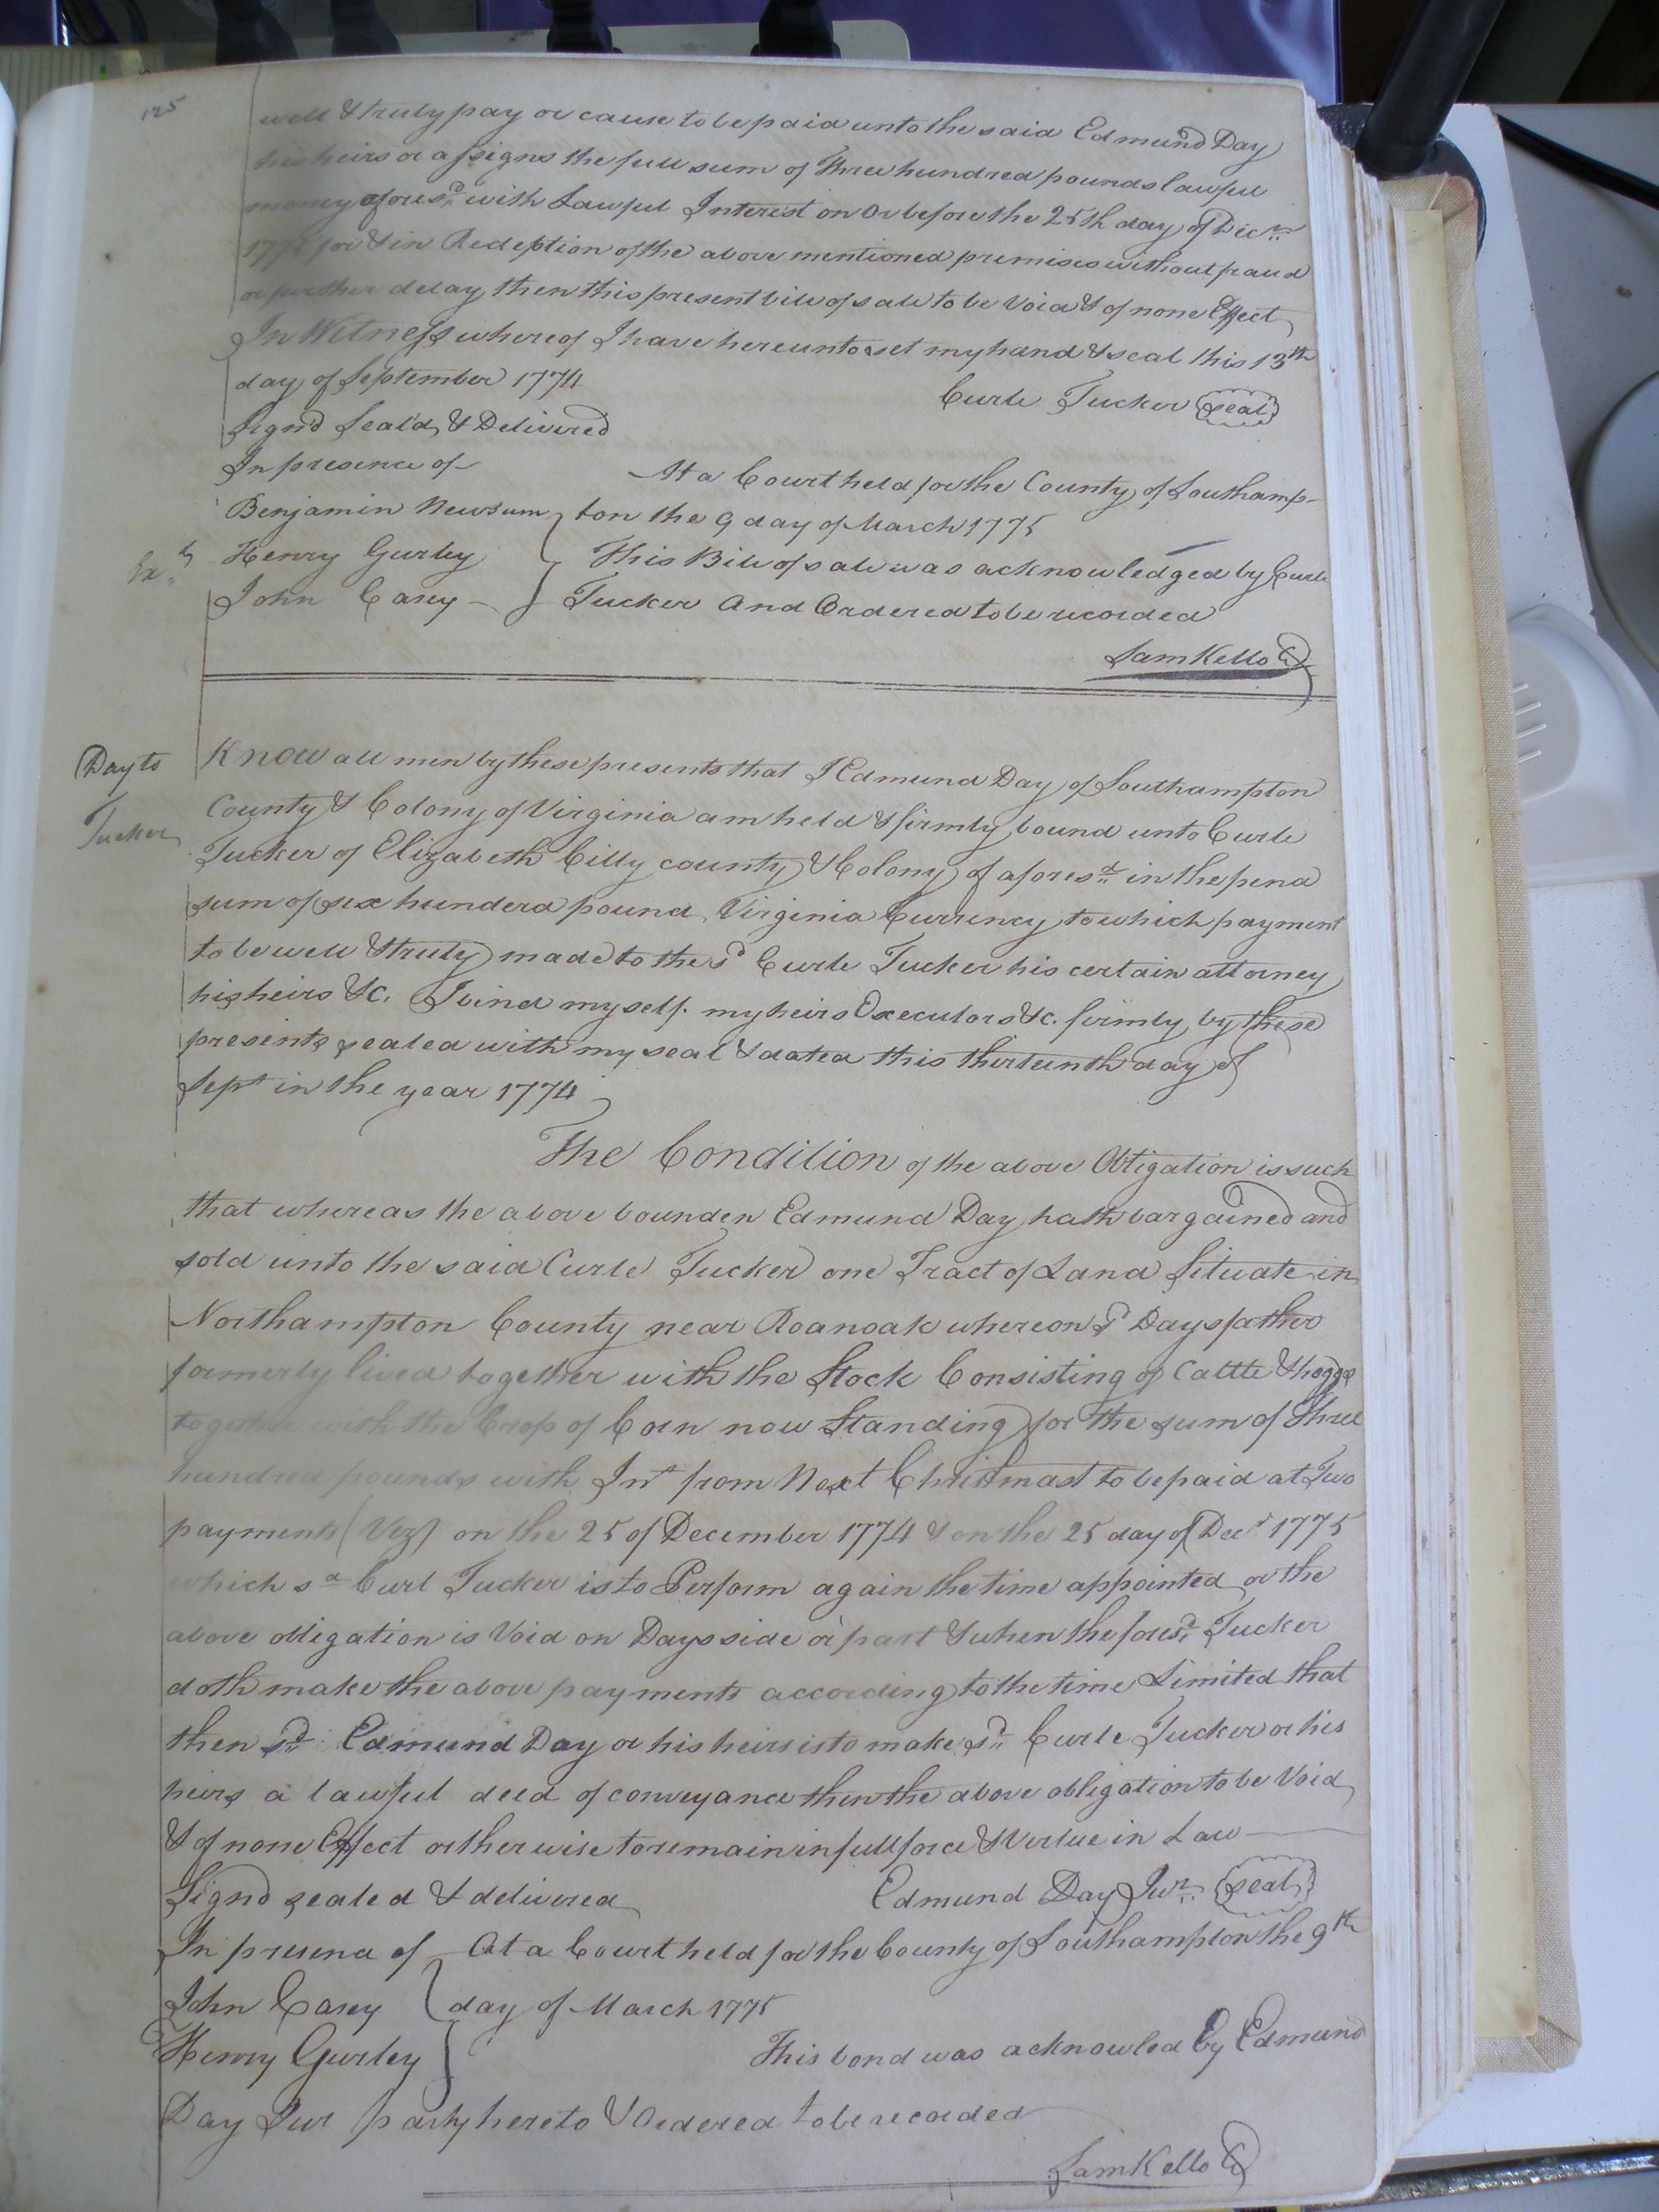 125
well & truly pay or cause to be paid unto the said Edmund Day
his heirs or assigns the full sum of Three hundred pounds lawful
money afores.d with Lawful Interest on Or before the 25th day of Dec.r
for & in Redeption of the above mentioned premises without fraud
or further delay then this present bill of sale to be Void & of none Effect
In Witness whereof I have hereunto set my hand & seal this 13th
day of September 1774
Curle Tucker (seal)
Signd Seal'd, & Delivered
In presence of
At a Court held for the County of Southamp-
Benjamin Newsum
ton the 9 day of March 1775
Henry Gurley
This Bill of sale was acknowledged by Curle
John Casey
Tucker And Ordered to be recorded
Sam Kello
Day to
Tucker
Know all men by these presents that I Edmund Day of Southampton
County & Colony of Virginia am held & firmly bound unto Curle
Tucker of Elizabeth Citty county & Colony of afores.d in the pena
sum of six hunderd pound Virginia Currency to which payment
to be well & truly made to the sd Curle Tucker his certain attorney
his heirs &c. I bind myself. my heirs Executors &c. firmly by these
presents sealed with my seal & dated this thirteenth day of
Sept in the year 1774
The Condition of the above Obligation is such
that whereas the above bounden Edmund Day hath bargained and
sold unto the said Curle Tucker one Tract of Land Situate in
Northampton County near Roanoak whereon sd Days father
formerly lived together with the Stock Consisting of Cattle & hoggs
together with the Crop of Corn now Standing for the sum of three
hundred pounds with Int from Next Christmast to be paid at Two
payments (Viz) on the 25 of December 1774 & on the 25 day of Decr 1775
which sd Curl Tucker is to Perform again the time appointed or the
above obligation is Void on Days side or part & when the fores.d Tucker
doth make the above payments according to the time Limited that
then sd. Edmund Day or his heirs is to make sd. Curle Tucker or his
heirs a lawful deed of conveyance then the above obligation to be Void
& of none Effect or therwise to remain in full force & Vertue in Law
Signd sealed & delivered
Edmund Day Jur. (seal)
In presence of
At a Court held for the County of Southampton the 9th
John Casey
day of March 1775
Henry Gurley
This bond was acknowled by Edmund
Day Jur party hereto & Ordered to be recorded
Sam Kello